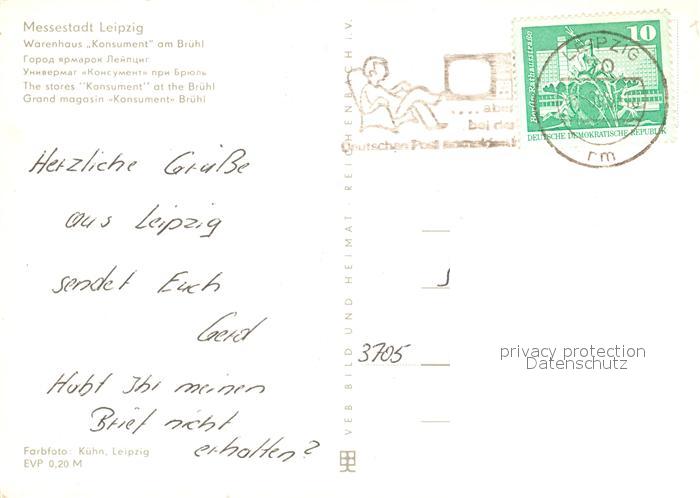 Messestadt Leipzig
Warenhaus „Konsument" am Brühl
Город ярмарок Лейпциг
Универмаг «Консумент» при Брюль
The stores "Konsument" at the Brühl
Grand magasin «Konsument» Brühl
Herzliche Grüße
aus Leipzig
sendet Euch
Gerd
Habt Ihr meinen
Brief nicht
erhalten?
Farbfoto: Kühn, Leipzig
EVP 0,20 M
VEB BILD UND HEIMAT · REICHENBACH i. V.
.... aber
bei der
Deutschen Post anmelden!
10
Berlin, Rathausstraße
DEUTSCHE DEMOKRATISCHE REPUBLIK
LEIPZIG
rm
3705
privacy protection
Datenschutz